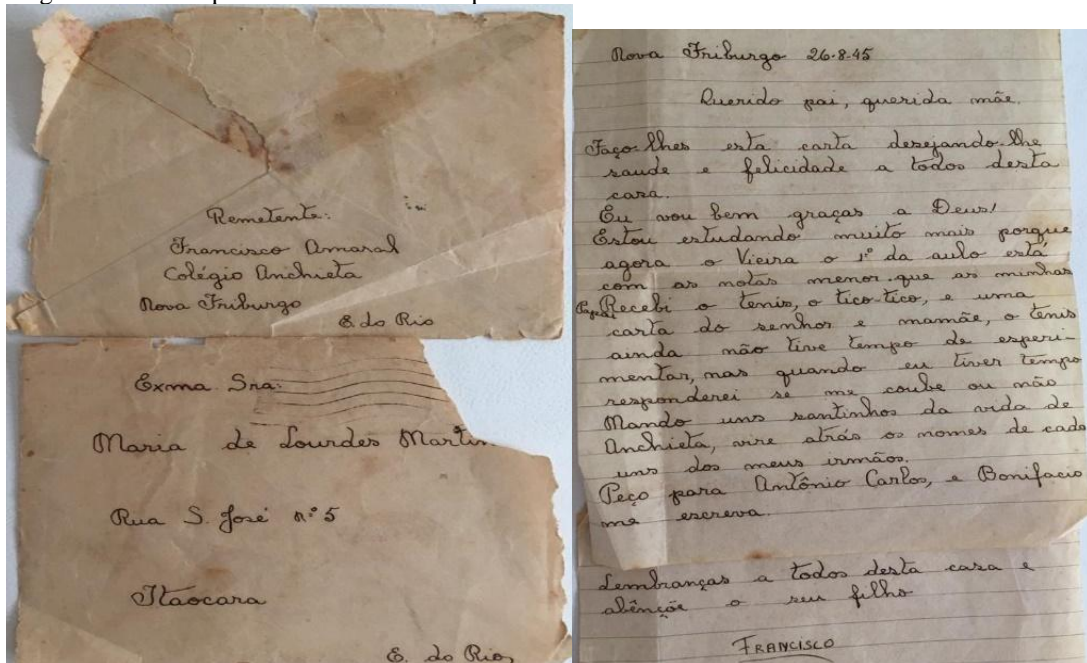 Remetente:
Francisco Amaral
Colégio Anchieta
Nova Friburgo
E. do Rio
Exma. Sra:
Maria de Lourdes Martin
Rua S. José n.º 5
Itaocara
E. do Rio
Nova Friburgo 26-8-45
Querido pai, querida mãe.
Faço-lhes esta carta desejando-lhe
saude e felicidade a todos desta
casa.
Eu vou bem graças a Deus!
Estou estudando muito mais porque
agora o Vieira o 1º da aulo está
com as notas menor que as minhas
Papai Recebi o tenis, o tico-tico, e uma
carta do senhor e mamãe, o tenis
ainda não tive tempo de experi-
mentar, mas quando eu tiver tempo
responderei se me coube ou não
Mando uns santinhos da vida de
Anchieta, vire atrás os nomes de cada
uns dos meus irmãos.
Peço para Antônio Carlos, e Bonifacio
me escreva.
Lembranças a todos desta casa e
abênçõe o seu filho
FRANCISCO